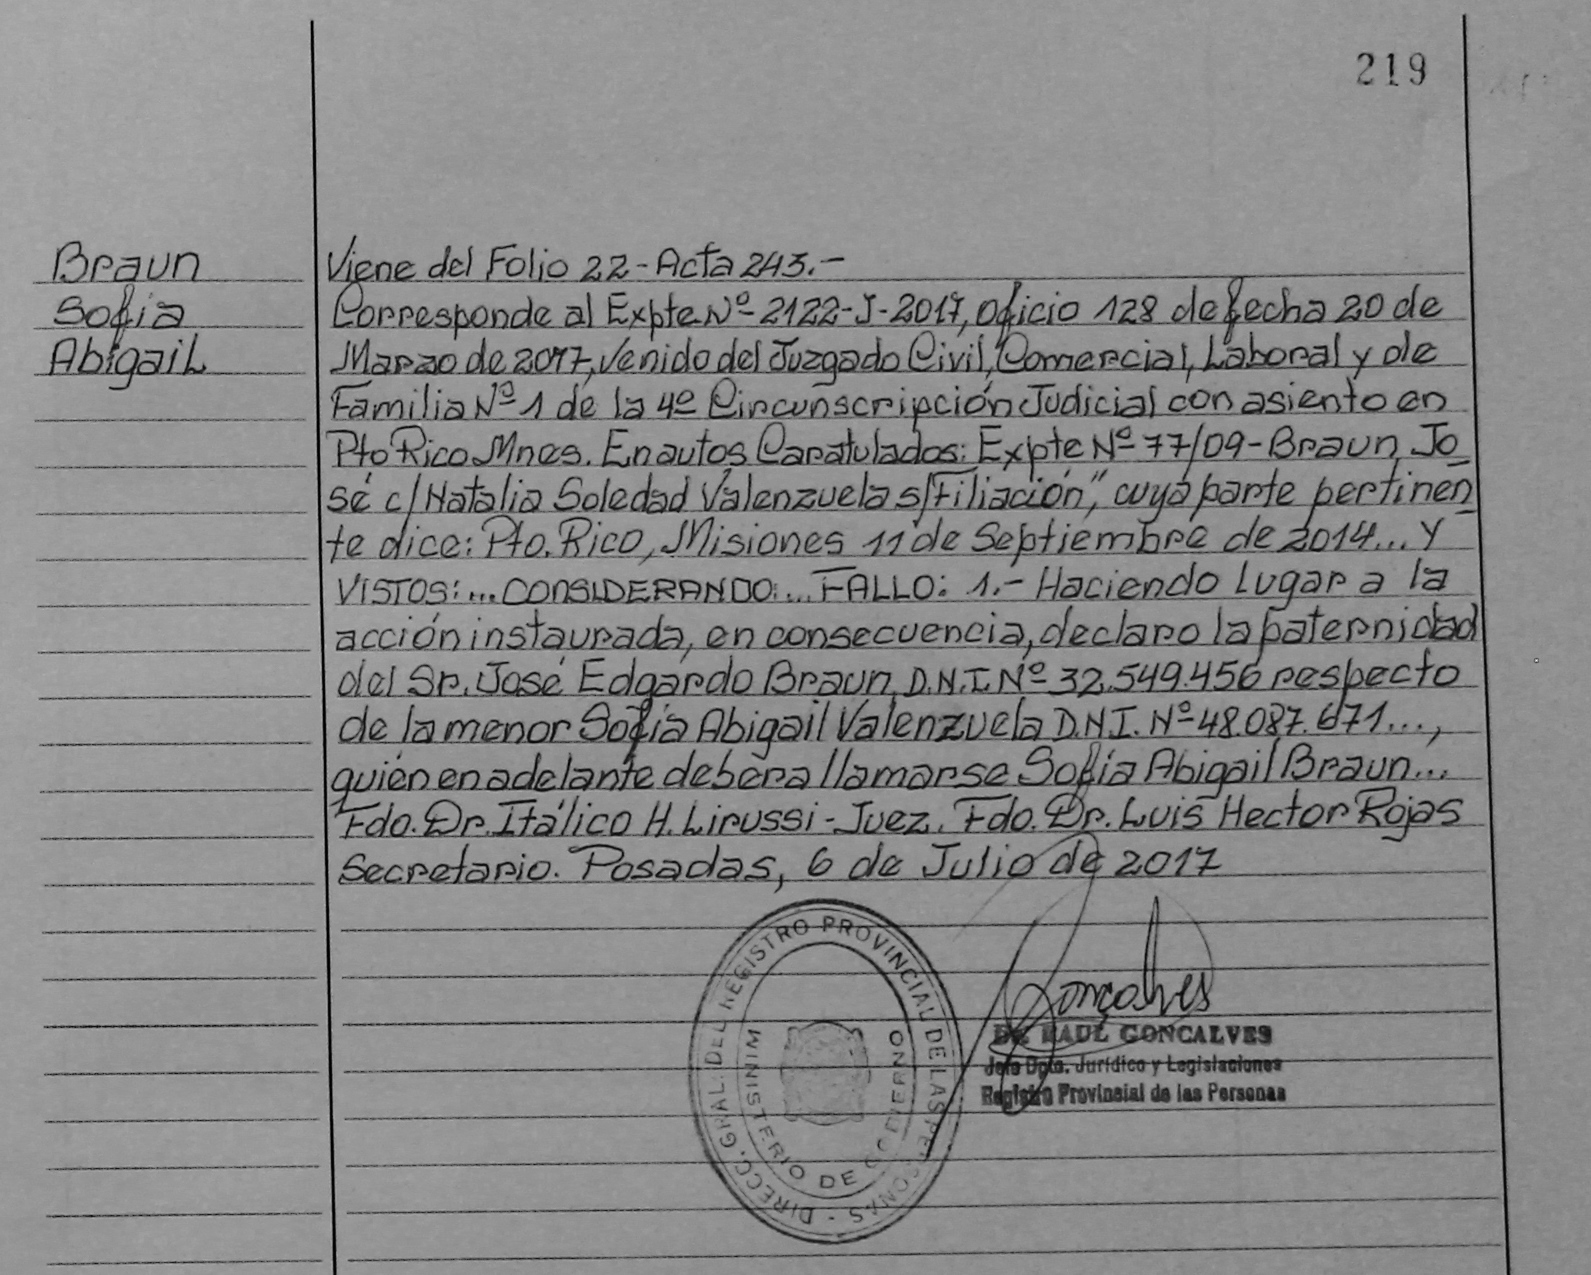 219
Braun
Sofia
Abigail
Viene del Folio 22-Acta 243.-
Corresponde al Expte Nº 2122-J-2017, Oficio 128 de fecha 20 de
Marzo de 2017, venido del Juzgado Civil, Comercial, Laboral y de
Familia Nº 1 de la 4º Circunscripción Judicial con asiento en
Pto Rico Mnes. En autos Caratulados: Expte Nº 77/09-Braun, Jo
sé c/ Natalia Soledad Valenzuela s/Filiación", cuya parte pertinen
te dice: Pto. Rico, Misiones 11 de Septiembre de 2014... Y
VISTOS:... CONSIDERANDO:... FALLO: 1.- Haciendo Lugar a la
acción instaurada, en consecuencia, declaro la paternidad
del Sr. José Edgardo Braun, D.N.I. Nº 32.549.456 respecto
de la menor Sofía Abigail Valenzuela D.N.I. Nº 48.087.671...,
quién en adelante deberá llamarse Sofía Abigail Braun...
Fdo. Dr. Itálico H. Lirussi - Juez. Fdo. Dr. Luis Hector Rojas
Secretario. Posadas, 6 de Julio de 2017
DIRECC. GRAL. DEL REGISTRO PROVINCIAL DE LAS PERSONAS -
MINISTERIO DE GOBIERNO
Gonçalves
Dr. RAUL GONCALVES
Jefe Dpto. Jurídico y Legislaciones
Registro Provincial de las Personas